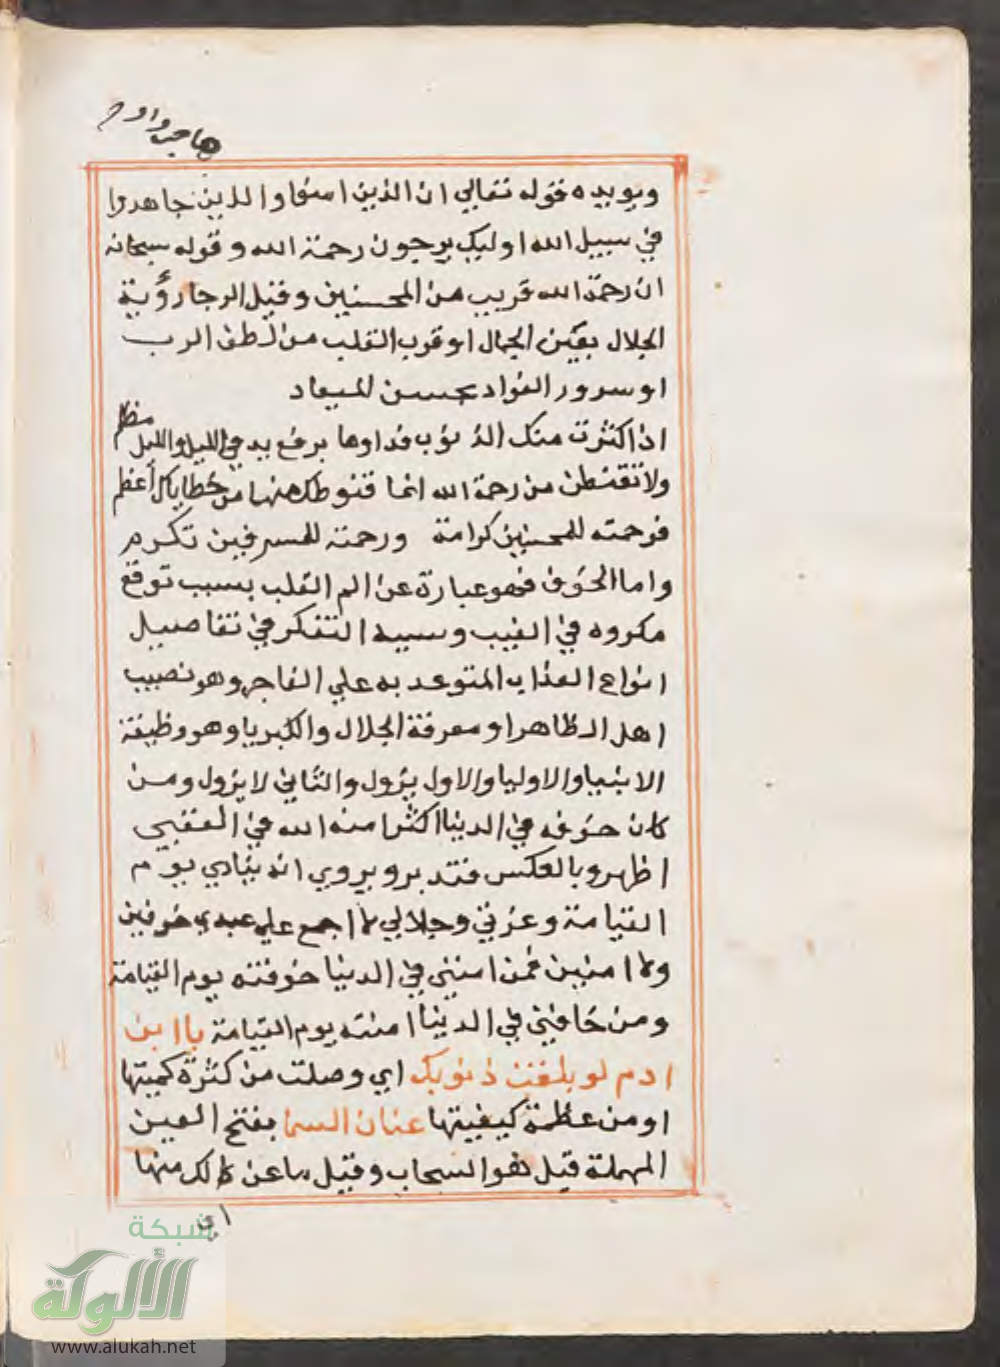 ويويده قوله تعالي ان الذين امنوا والذين جاهدوا
في سبيل الله اوليك يرجون رحمة الله وقوله سبحانه
ان رحمة الله قريب من المحسنين وقيل الرجا رؤية
الجلال بعين الجمال او قرب القلب من لطف الرب
او سرور الفواد بحسن الميعاد
اذا كثرت منك الذنوب فداوها برفع يد في الليل والليل مظلم
ولا تقنطن من رحمة الله انما قنوطك منها من خطاياك أعظم
فرحمته للمحسنين كرامة ورحمته للمسرفين تكرم
واما الخوف فهو عبارة عن الم القلب بسبب توقع
مكروه في الغيب وسببه التفكر في تفاصيل
انواع العذاب المتوعد به علي الفاجر وهو نصيب
اهل الظاهر او معرفة الجلال والكبريا وهو وظيفة
الانبيا والاوليا والاول يزول والثاني لا يزول ومن
كان خوفه في الدنيا اكثر امنه الله في العقبي
اظهر وبالعكس فتدبر ويروي انه ينادي يوم
القيامة وعزتي وجلالي لا اجمع علي عبدي خوفين
ولا امنين فمن امنني في الدنيا خوفته يوم القيامة
ومن خافني في الدنيا امنته يوم القيامة يا ابن
ادم لو بلغت ذنوبك اي وصلت من كثرة كميتها
او من عظمة كيفيتها عنان السما بفتح العين
المهملة قيل هو السحاب وقيل ما عن لك منها
اي
شبكة
الألوكة
www.alukah.net